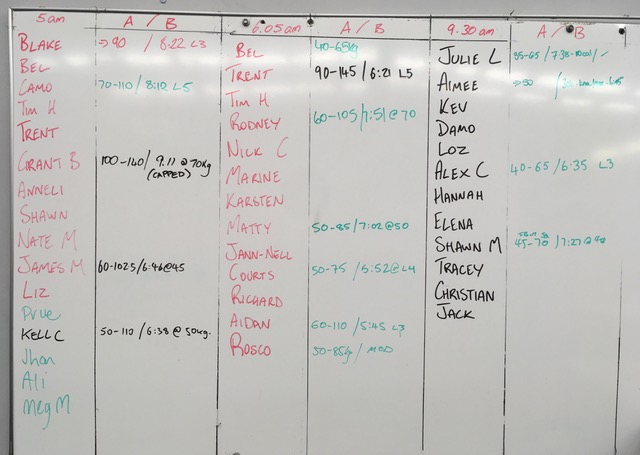 5am A / B
BLAKE →90 / 8:22 L3
BEL
CAMO 70-110 / 8:12 L5
TIM H
TRENT
GRANT B 100-140 / 9:11 @ 70kg
(CAPPED)
ANNELI
SHAWN
NATE M
JAMES M 60-102.5 / 6:46@45
LIZ
Prue
KELL C 50-110 / 6:38 @ 50kg.
Jhon
Ali
Meg M
6.05am A / B
BEL 40-65kg
TRENT 90-145 / 6:21 L5
TIM H
RODNEY 60-105 / 7:51 @ 70
NICK C
MARINE
KARSTEN
MATTY 50-85 / 7:02@50
JANN-NELL
COURTS 50-75 / 5:52@L4
RICHARD
AIDAN 60-110 / 5:45 L3
ROSCO 50-85kg / MOD
9.30am A / B
JULIE L 35-65 / 7:38
AIMEE
KEV
DAMO
LOZ
ALEX C 40-65 / 6:35 L3
HANNAH
ELENA
SHAWN M 45-70 / 7:27@
TRACEY
CHRISTIAN
JACK